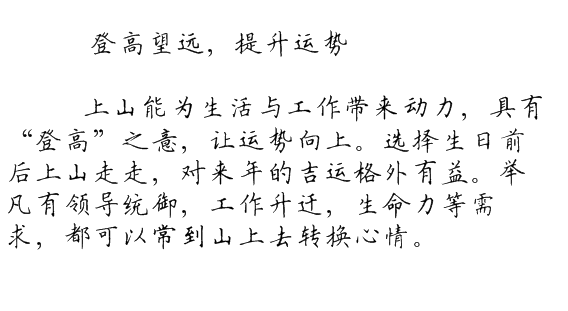 登高望远，提升运势
上山能为生活与工作带来动力，具有
“登高”之意，让运势向上。选择生日前
后上山走走，对来年的吉运格外有益。举
凡有领导统御，工作升迁，生命力等需
求，都可以常到山上去转换心情。